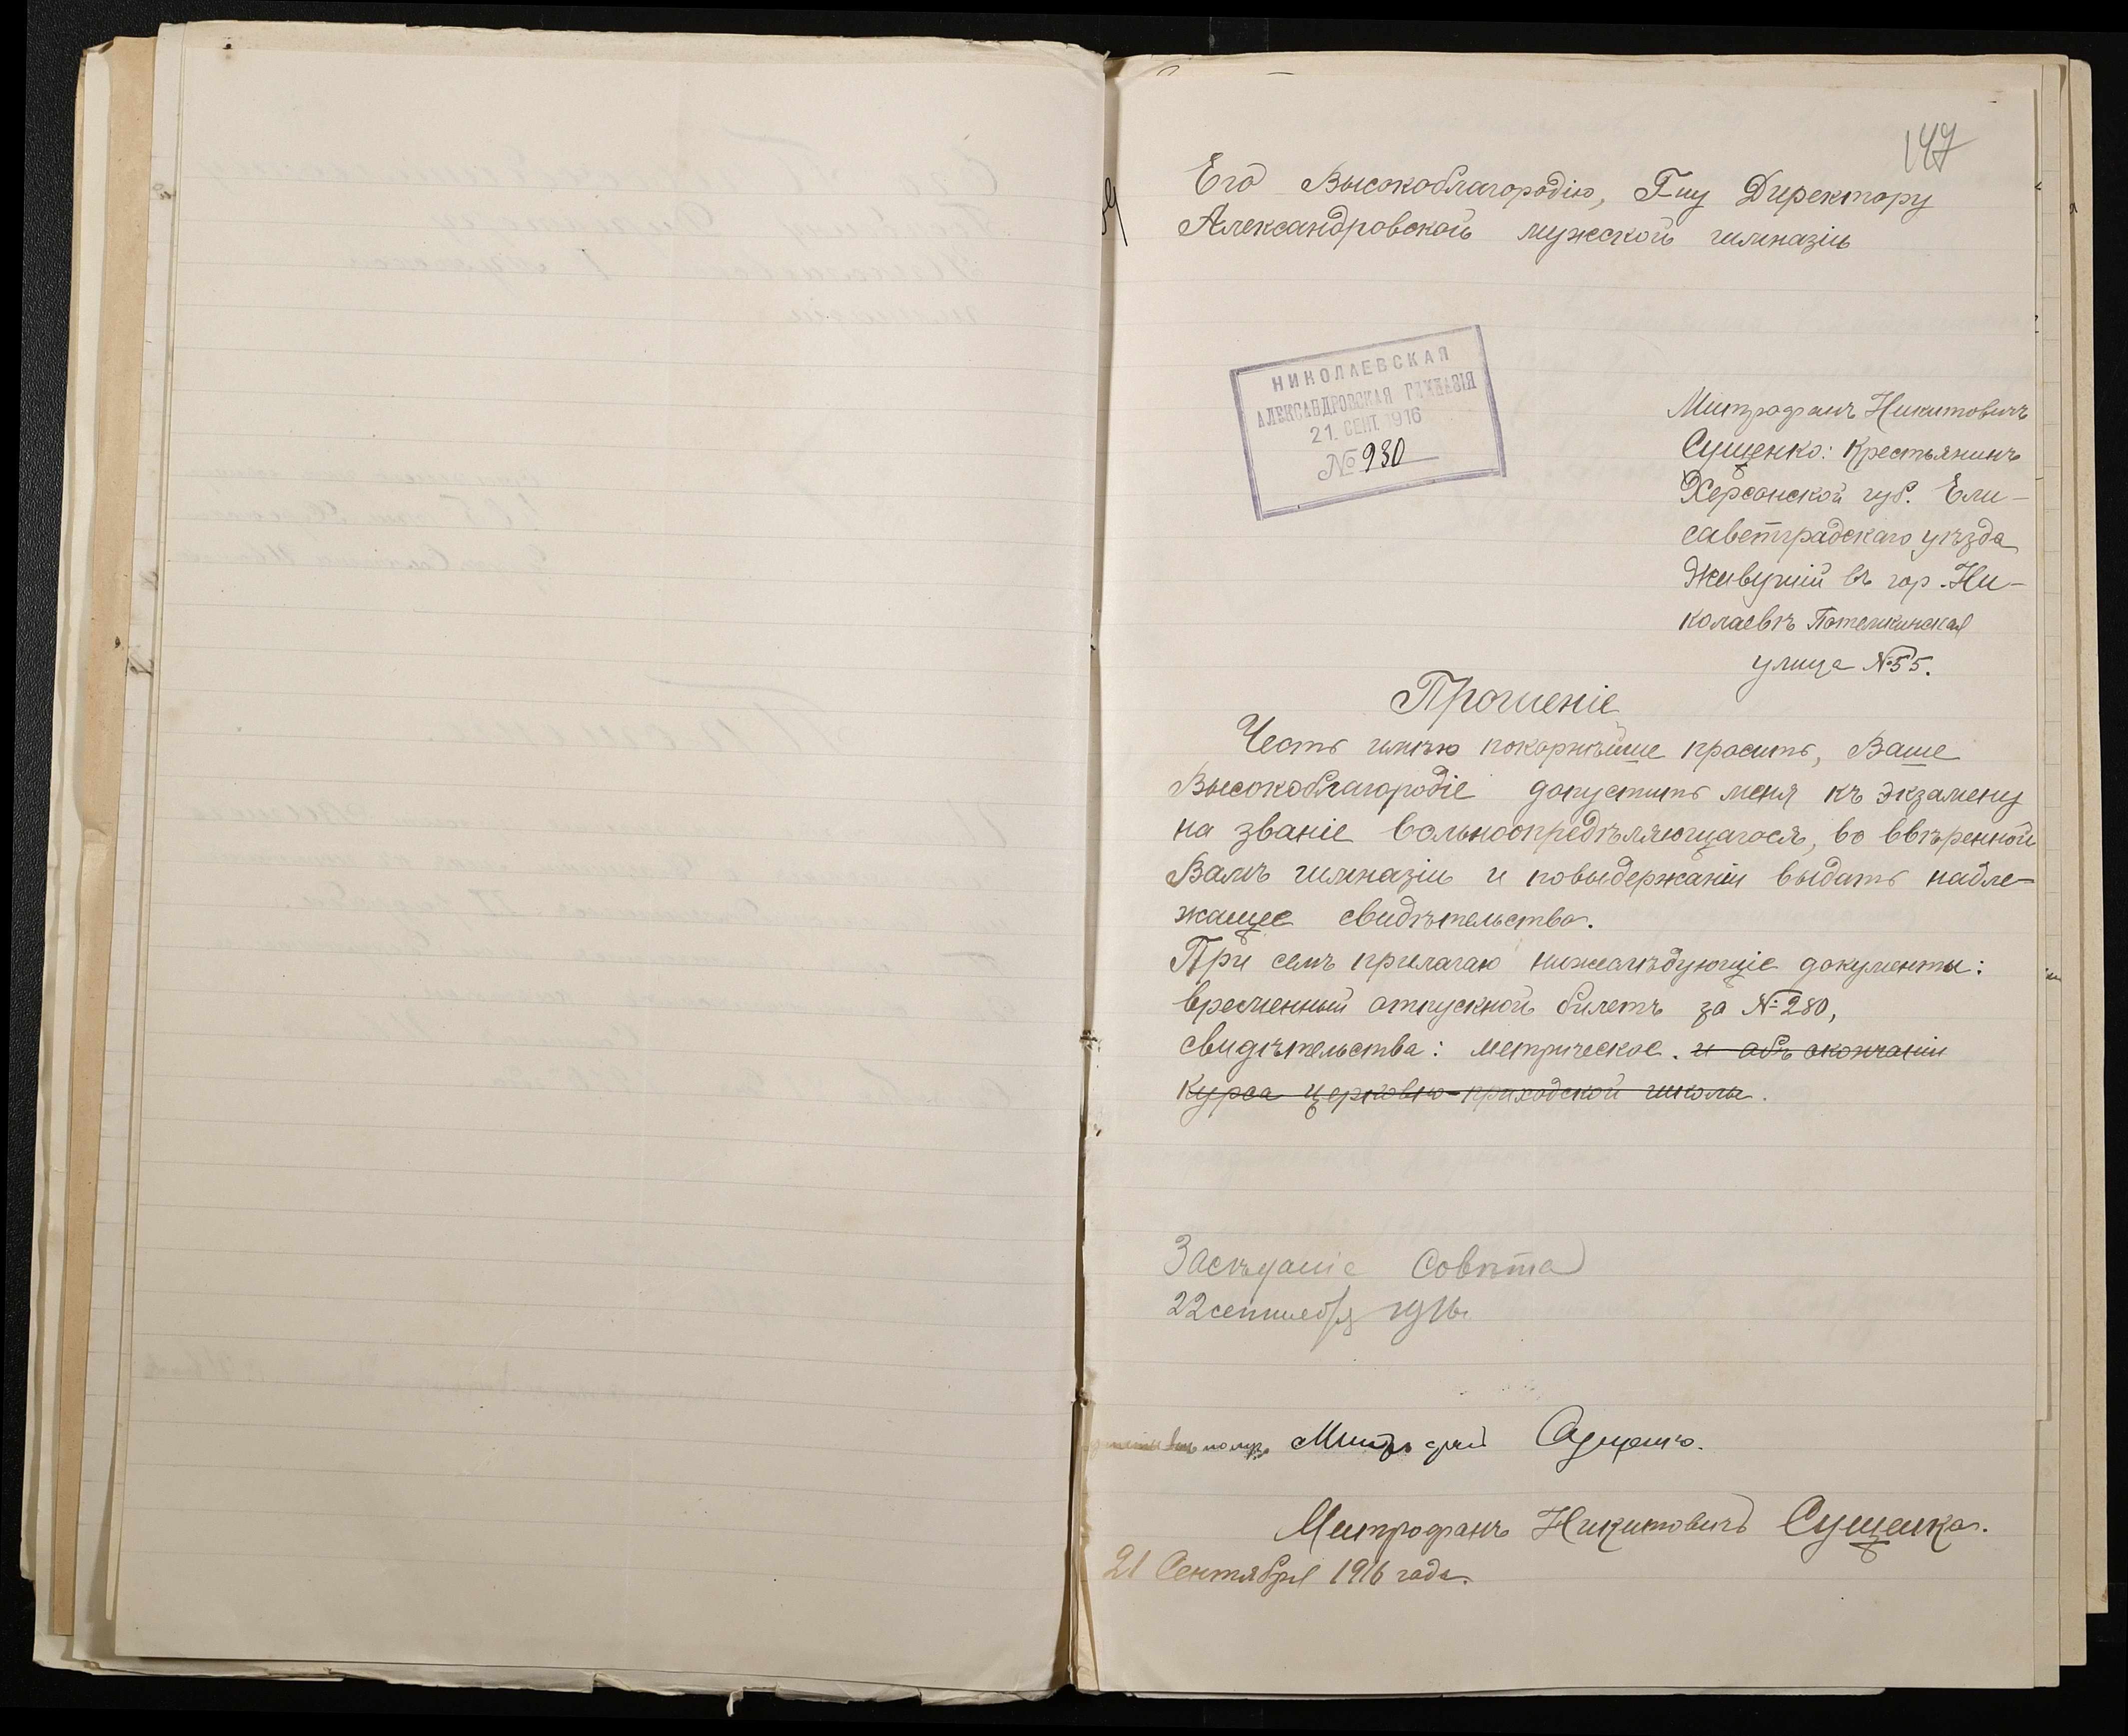 147
Его Высокоблагородію, Г-ну Директору
Александровской мужской гимназіи
НИКОЛАЕВСКАЯ
АЛЕКСАНДРОВСКАЯ ГИМНАЗІЯ
21. СЕНТ. 1916
№ 930
Митрофанъ Никитовичъ
Сущенко: Крестьянинъ
Херсонской губ. Ели-
саветградскаго уѣзда
Живущій въ гор. Ни-
колаевѣ Потемкинская
улица № 55.
Прошеніе
Честь имѣю покорнѣйше просить, Ваше
Высокоблагородіе допустить меня къ экзамену
на званіе вольноопредѣляющагося, во ввѣренной
Вамъ гимназіи и повыдержаніи выдать надле-
жащее свидѣтельство.
При семъ прилагаю нижеслѣдующіе документы:
временный отпускной билетъ за № 280,
свидѣтельства: метрическое. и объ окончаніи
Курса церковно-приходской школы.
Засѣданіе Совѣта
22 сентября 1916
Сущенко.
Митрофанъ Никитовичъ Сущенко.
21 Сентября 1916 года.